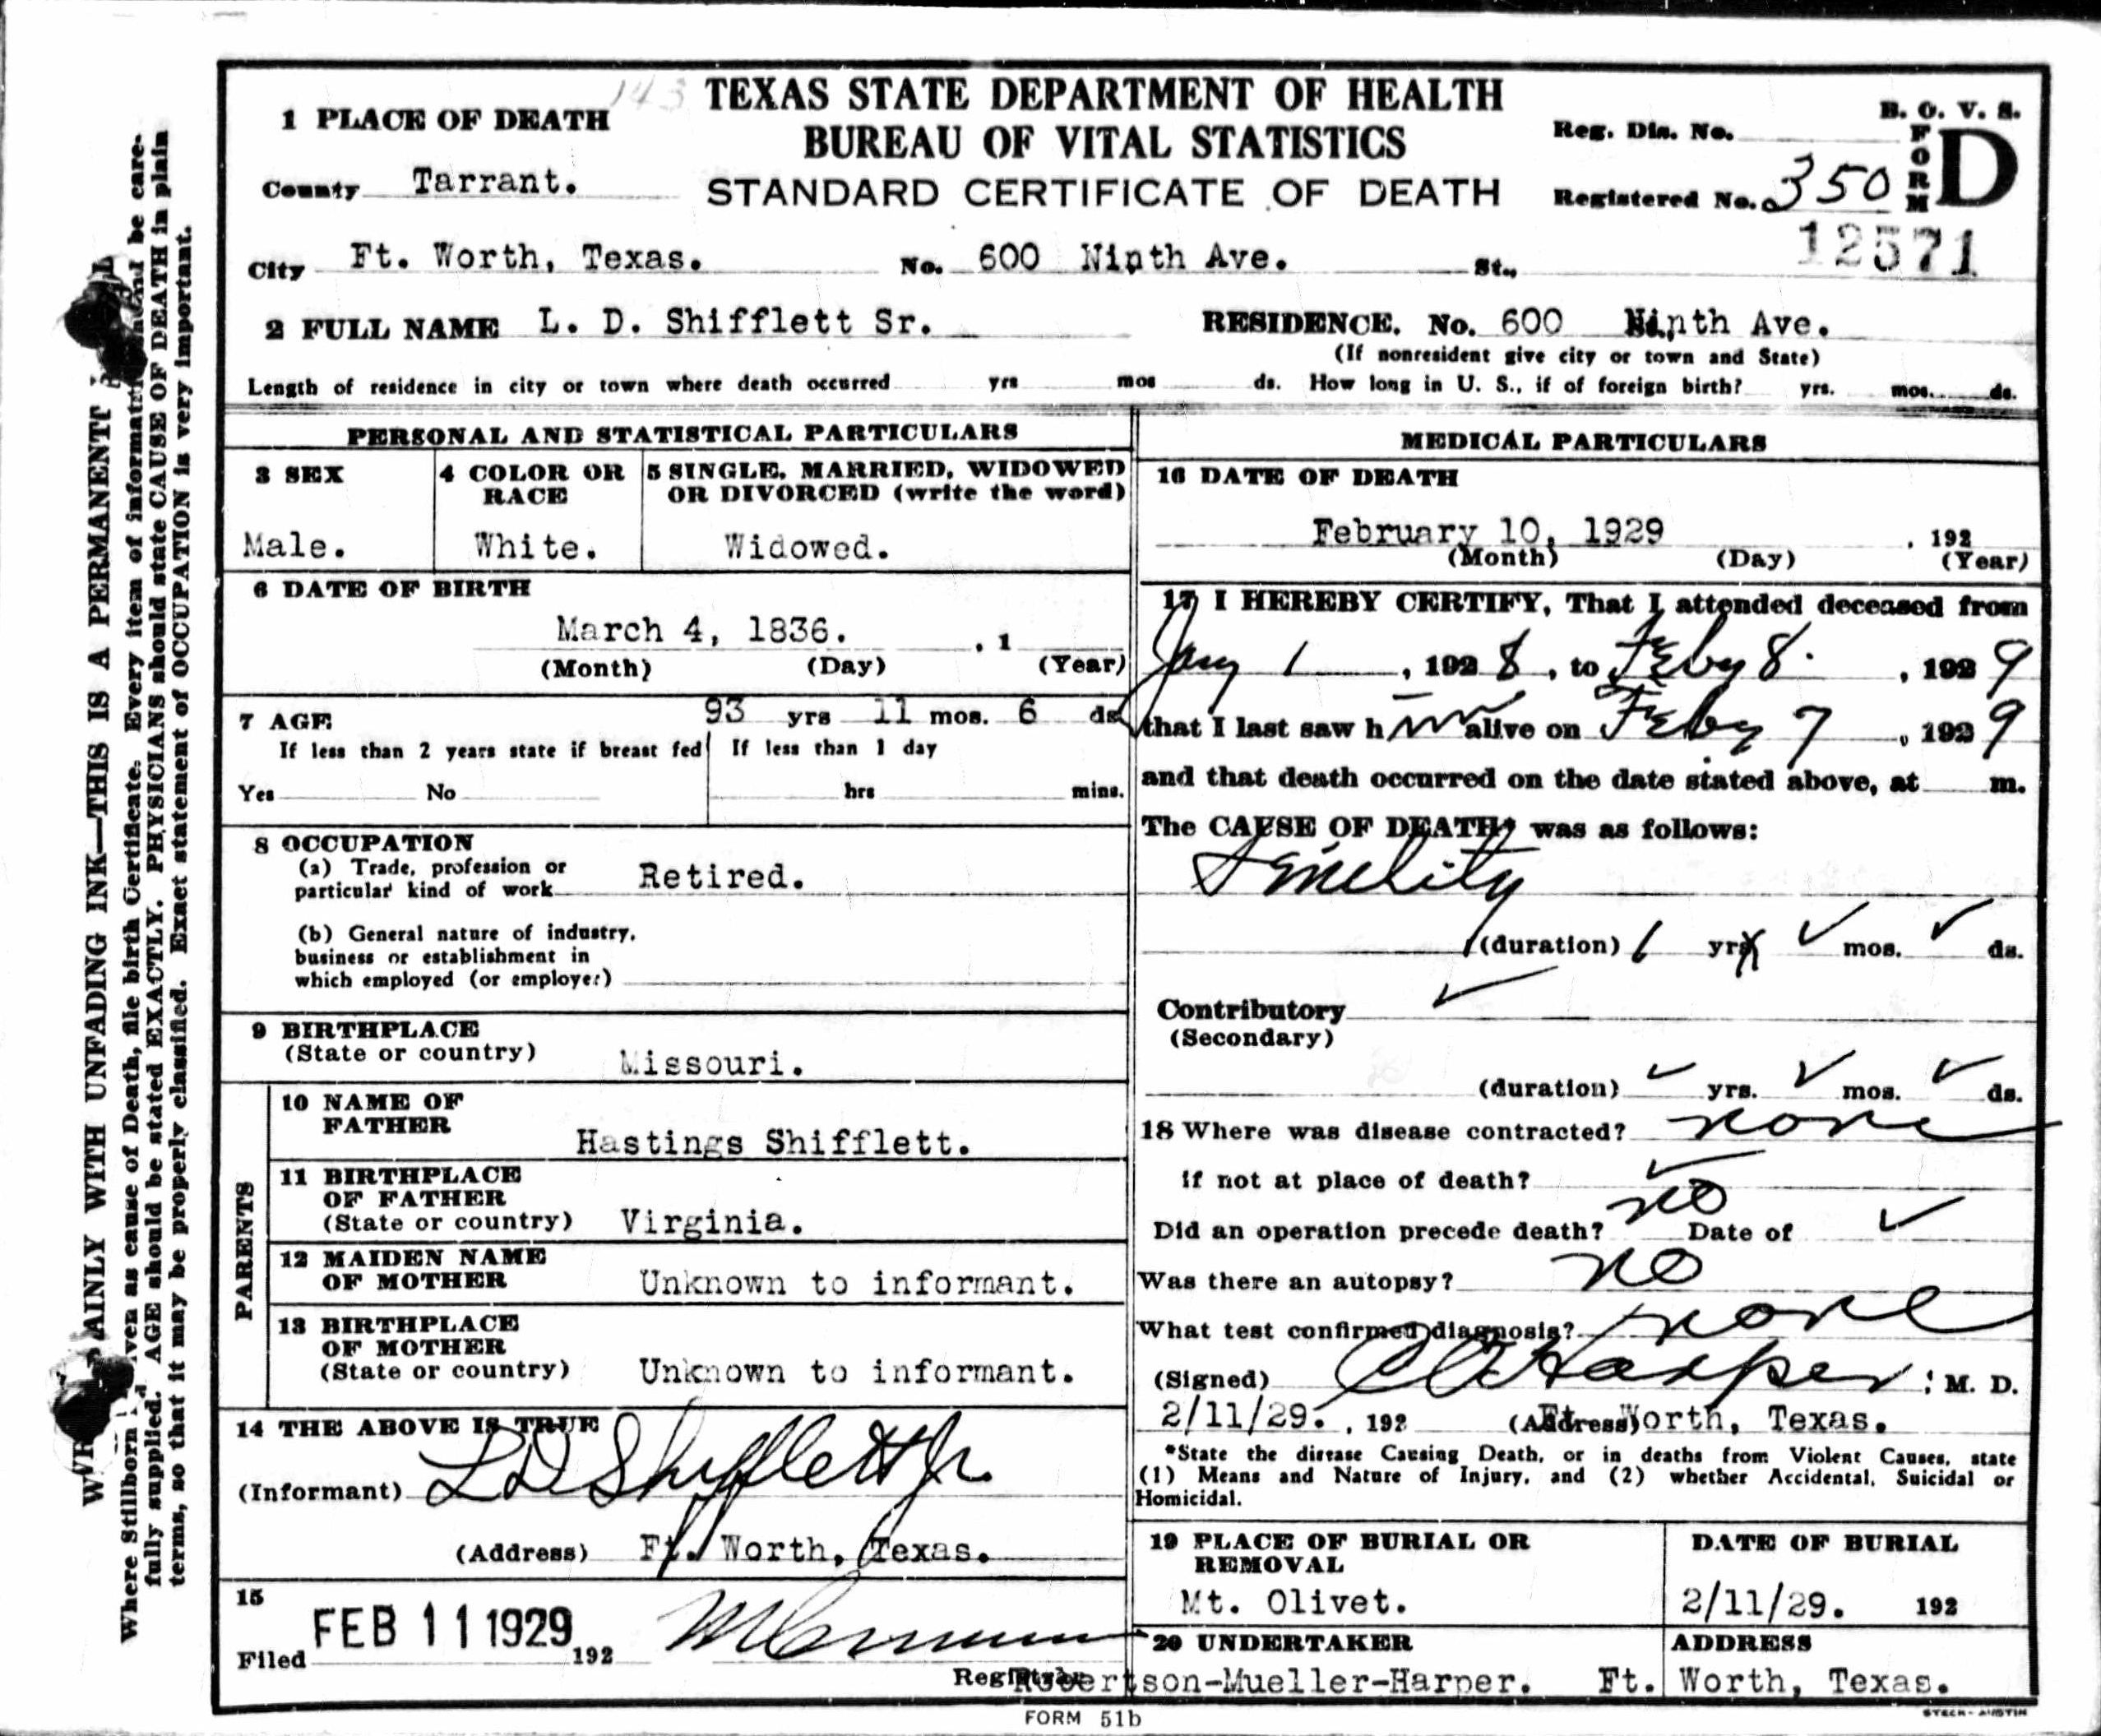 143
TEXAS STATE DEPARTMENT OF HEALTH
BUREAU OF VITAL STATISTICS
STANDARD CERTIFICATE OF DEATH
B. O. V. S.
FORM D
1 PLACE OF DEATH
Reg. Dis. No.
County Tarrant.
Registered No. 350
12571
City Ft. Worth, Texas. No. 600 Ninth Ave. St.,
2 FULL NAME L. D. Shifflett Sr. RESIDENCE. No. 600 Ninth Ave.
(If nonresident give city or town and State)
Length of residence in city or town where death occurred yrs mos ds. How long in U. S., if of foreign birth? yrs. mos. ds.
PERSONAL AND STATISTICAL PARTICULARS
3 SEX
Male.
4 COLOR OR RACE
White.
5 SINGLE, MARRIED, WIDOWED
OR DIVORCED (write the word)
Widowed.
6 DATE OF BIRTH
March 4, 1836. , 1
(Month) (Day) (Year)
7 AGE 93 yrs 11 mos. 6 ds
If less than 2 years state if breast fed
Yes No
If less than 1 day
hrs mins.
8 OCCUPATION
(a) Trade, profession or
particular kind of work Retired.
(b) General nature of industry,
business or establishment in
which employed (or employer)
9 BIRTHPLACE
(State or country) Missouri.
PARENTS
10 NAME OF
FATHER
Hastings Shifflett.
11 BIRTHPLACE
OF FATHER
(State or country) Virginia.
12 MAIDEN NAME
OF MOTHER Unknown to informant.
13 BIRTHPLACE
OF MOTHER
(State or country) Unknown to informant.
14 THE ABOVE IS TRUE
(Informant) L D Shifflett Jr.
(Address) Ft. Worth, Texas.
15
Filed FEB 11 1929 192
Registrar
MEDICAL PARTICULARS
16 DATE OF DEATH
February 10, 1929 , 192
(Month) (Day) (Year)
17 I HEREBY CERTIFY, That I attended deceased from
Jany 1 , 192 8 , to Feby 8. , 192 9
that I last saw h im alive on Feby 7 , 192 9
and that death occurred on the date stated above, at m.
The CAUSE OF DEATH* was as follows:
Senility
(duration) 1 yrs ✓ mos. ✓ ds.
Contributory ✓
(Secondary)
(duration) ✓ yrs. ✓ mos. ✓ ds.
18 Where was disease contracted? none
if not at place of death? ✓
Did an operation precede death? no Date of ✓
Was there an autopsy? no
What test confirmed diagnosis? none
(Signed) C O Harper , M. D.
2/11/29. , 192 (Address) Ft. Worth, Texas.
*State the disease Causing Death, or in deaths from Violent Causes, state
(1) Means and Nature of Injury, and (2) whether Accidental, Suicidal or
Homicidal.
19 PLACE OF BURIAL OR
REMOVAL
Mt. Olivet.
DATE OF BURIAL
2/11/29. 192
20 UNDERTAKER
Robertson-Mueller-Harper.
ADDRESS
Ft. Worth, Texas.
FORM 51b
STECK-AUSTIN
AINLY WITH UNFADING INK—THIS IS A PERMANENT
Where Stillborn iven as cause of Death, file birth Certificate. Every item of information should be care-
fully supplied. AGE should be stated EXACTLY. PHYSICIANS should state CAUSE OF DEATH in plain
terms, so that it may be properly classified. Exact statement of OCCUPATION is very important.